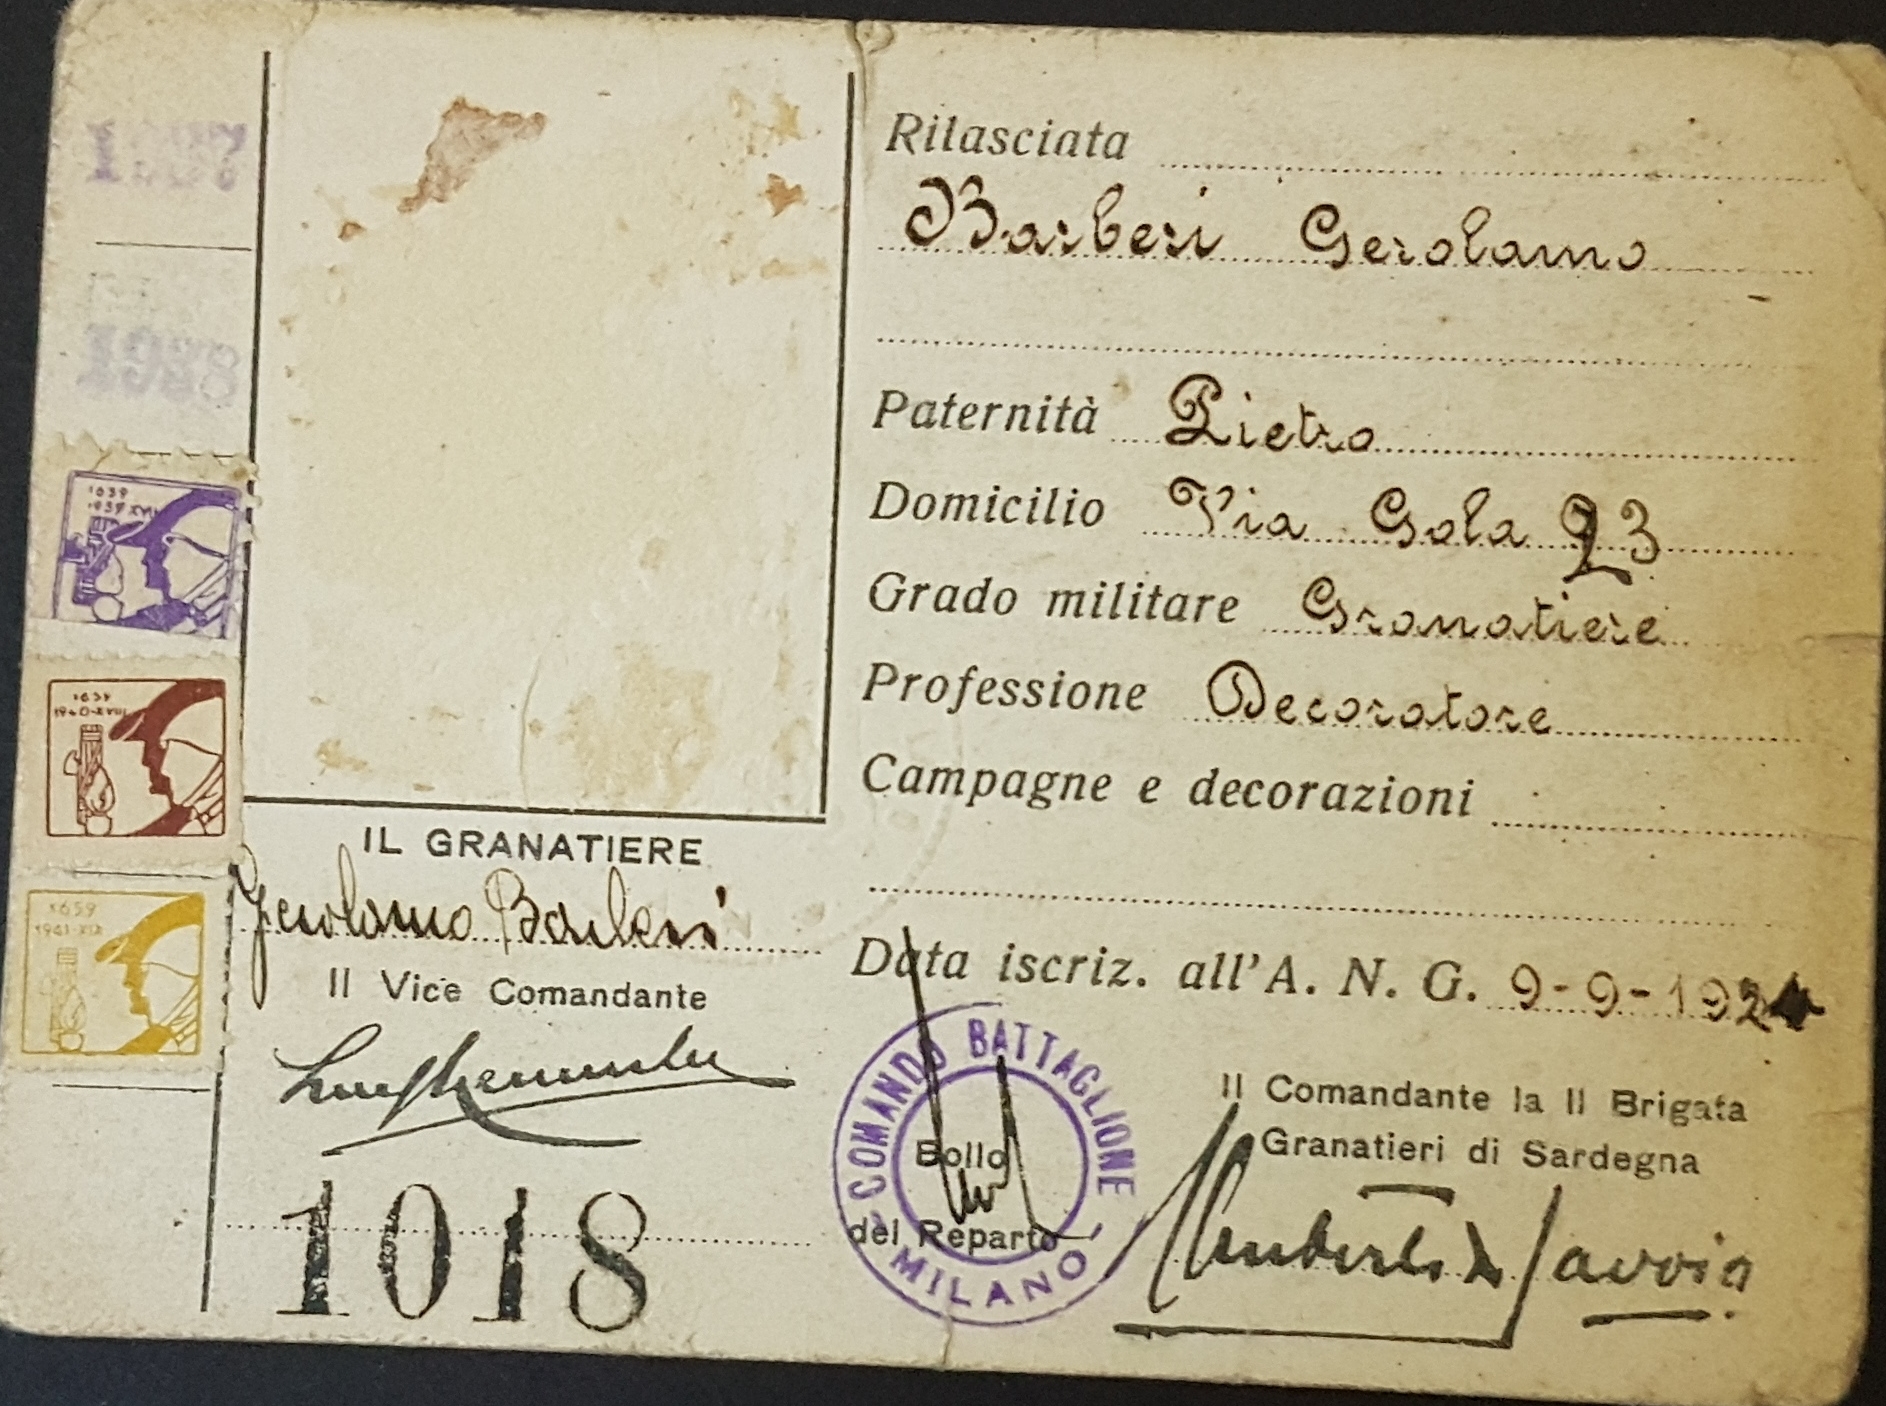 Rilasciata
Barberi Gerolamo
Paternità Pietro
Domicilio Via Gola 23
Grado militare Granatiere
Professione Decoratore
Campagne e decorazioni
Data iscriz. all'A. N. G. 9-9-192
Il Comandante la II Brigata
Granatieri di Sardegna
Umberto di Savoia
COMANDO BATTAGLIONE
Bollo
del Reparto
MILANO
IL GRANATIERE
Gerolamo Barberi
Il Vice Comandante
1018
1639
1939 XVII
1639
1940-XVIII
1659
1941-XIX